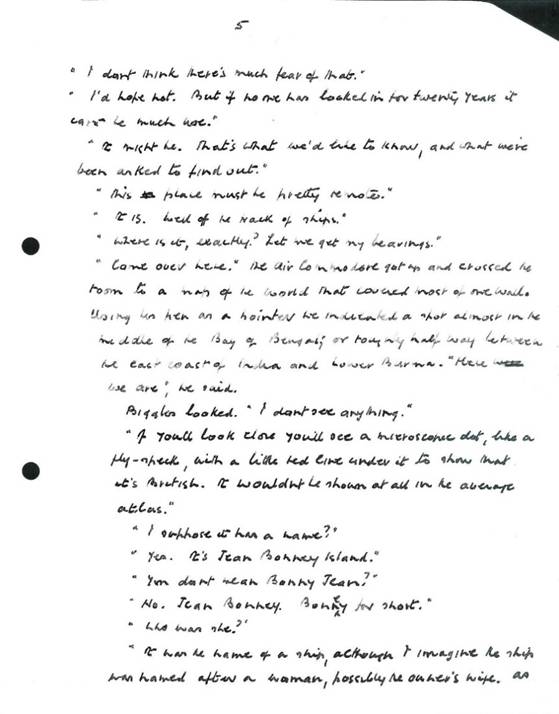 5
" I don't think there's much fear of that."
" I'd hope not. But if no one has looked in for twenty years it
can't be much use."
" It might be. That's what we'd like to know, and what we've
been asked to find out."
" This place must be pretty remote."
" It is. Well off the track of ships."
" Where is it, exactly? Let me get my bearings."
" Come over here." The Air Commodore got up and crossed the
room to a map of the world that covered most of one wall.
Using his pen as a pointer he indicated a spot almost in the
middle of the Bay of Bengal; or roughly half way between
the east coast of India and Lower Burma. "Here
we are", he said.
Biggles looked. " I don't see anything."
" If you'll look close you'll see a microscopic dot, like a
fly-speck, with a little red line under it to show that
it's British. It wouldn't be shown at all in the average
atlas."
" I suppose it has a name?"
" Yes. It's Jean Bonney Island."
" You don't mean Bonny Jean?"
" No. Jean Bonney. for short."
" Who was she?"
" It was the name of a ship, although I imagine the ship
was named after a woman, possibly the owner's wife. As